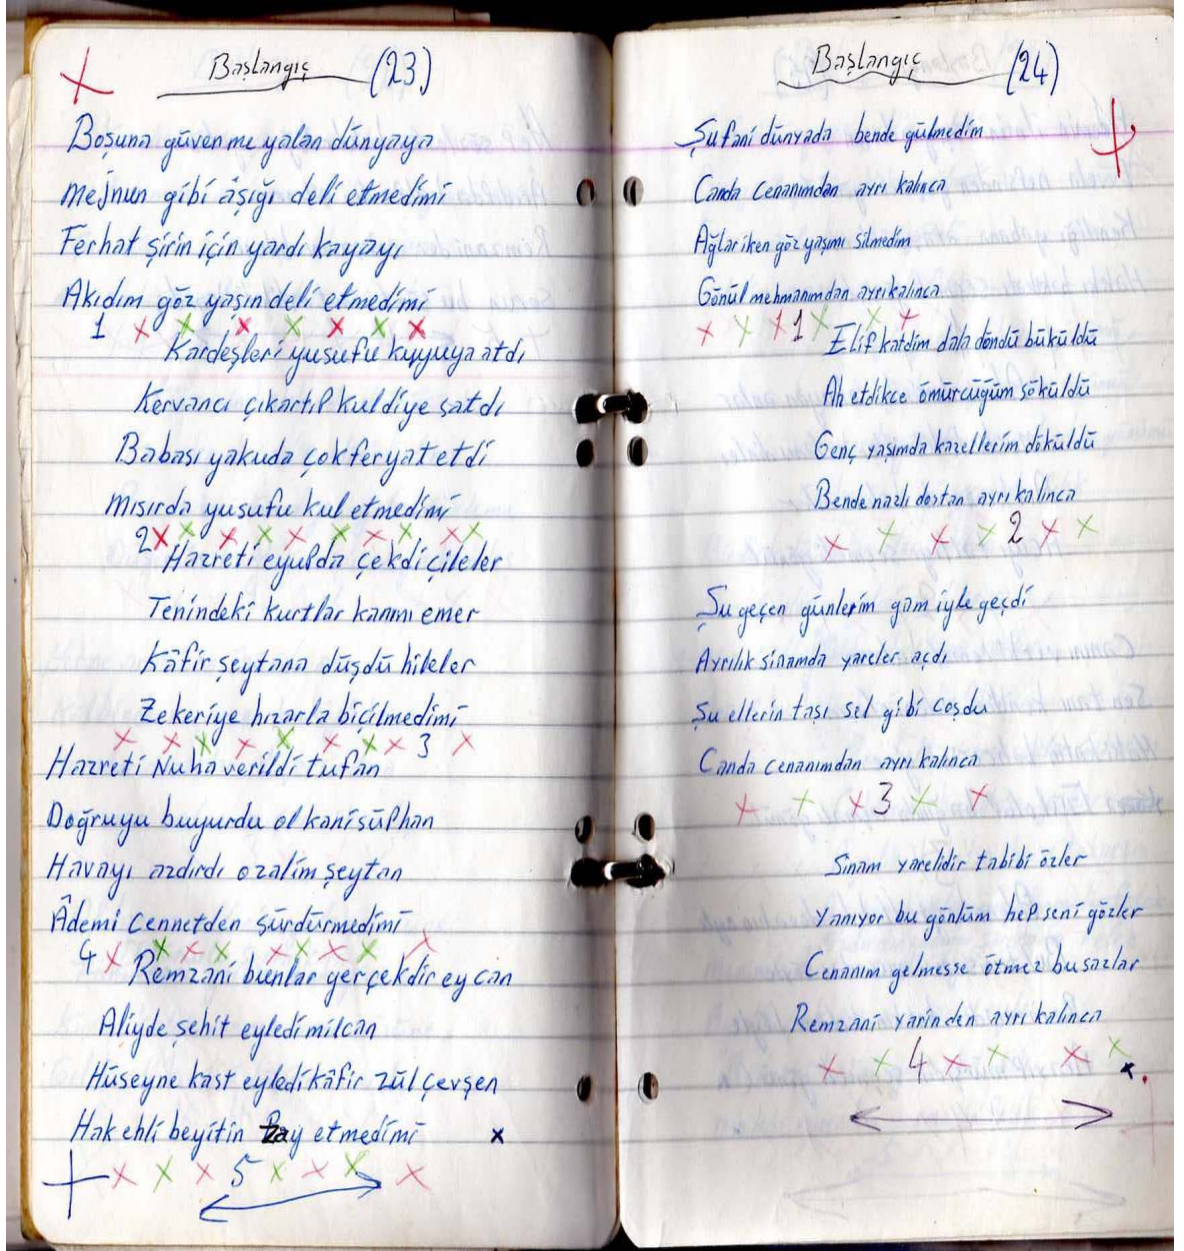 Başlangıç (23)
Boşuna güvenme yalan dünyaya
Mejnun gibi âşığı deli etmedimi
Ferhat şirin için yardı kayayı
Akıdım göz yaşın deli etmedimi
1
Kardeşleri yusufu kuyuya atdı
Kervancı çıkartıp kuldiye satdı
Babası yakuda çok feryat etdi
Mısırda yusufu kul etmedimi
2
Hazreti eyupda çekdi çileler
Tenindeki kurtlar kanmı emer
Kâfir şeytana düşdü hileler
Zekeriye hızarla biçilmedimi
3
Hazreti Nuha verildi tufan
Doğruyu buyurdu ol kani süphan
Havayı azdırdı o zalim şeytan
Âdemi cennetden sürdürmedimi
4
Remzani bunlar gerçekdir ey can
Aliyde şehit eyledi milcan
Hüseyne kast eyledi kâfir zülçevşen
Hak ehli beyitin zay etmedimi
5
Başlangıç (24)
Şu fani dünyada bende gülmedim
Canda cenanımdan ayrı kalınca
Ağlar iken göz yaşımı silmedim
Gönül mehmanımdan ayrı kalınca
1
Elif katdim dala döndü büküldü
Ah etdikce ömürcüğüm söküldü
Genç yaşımda kazellerim döküldü
Bende nazlı dostan ayrı kalınca
2
Şu geçen günlerim gam iyle geçdi
Ayrılık sinamda yareler açdı
Şu ellerin taşı sel gibi coşdu
Canda cenanımdan ayrı kalınca
3
Sinam yarelidir tabibi özler
Yanıyor bu gönlüm hep seni gözler
Cenanım gelmesse ötmez bu sazlar
Remzani yarinden ayrı kalınca
4